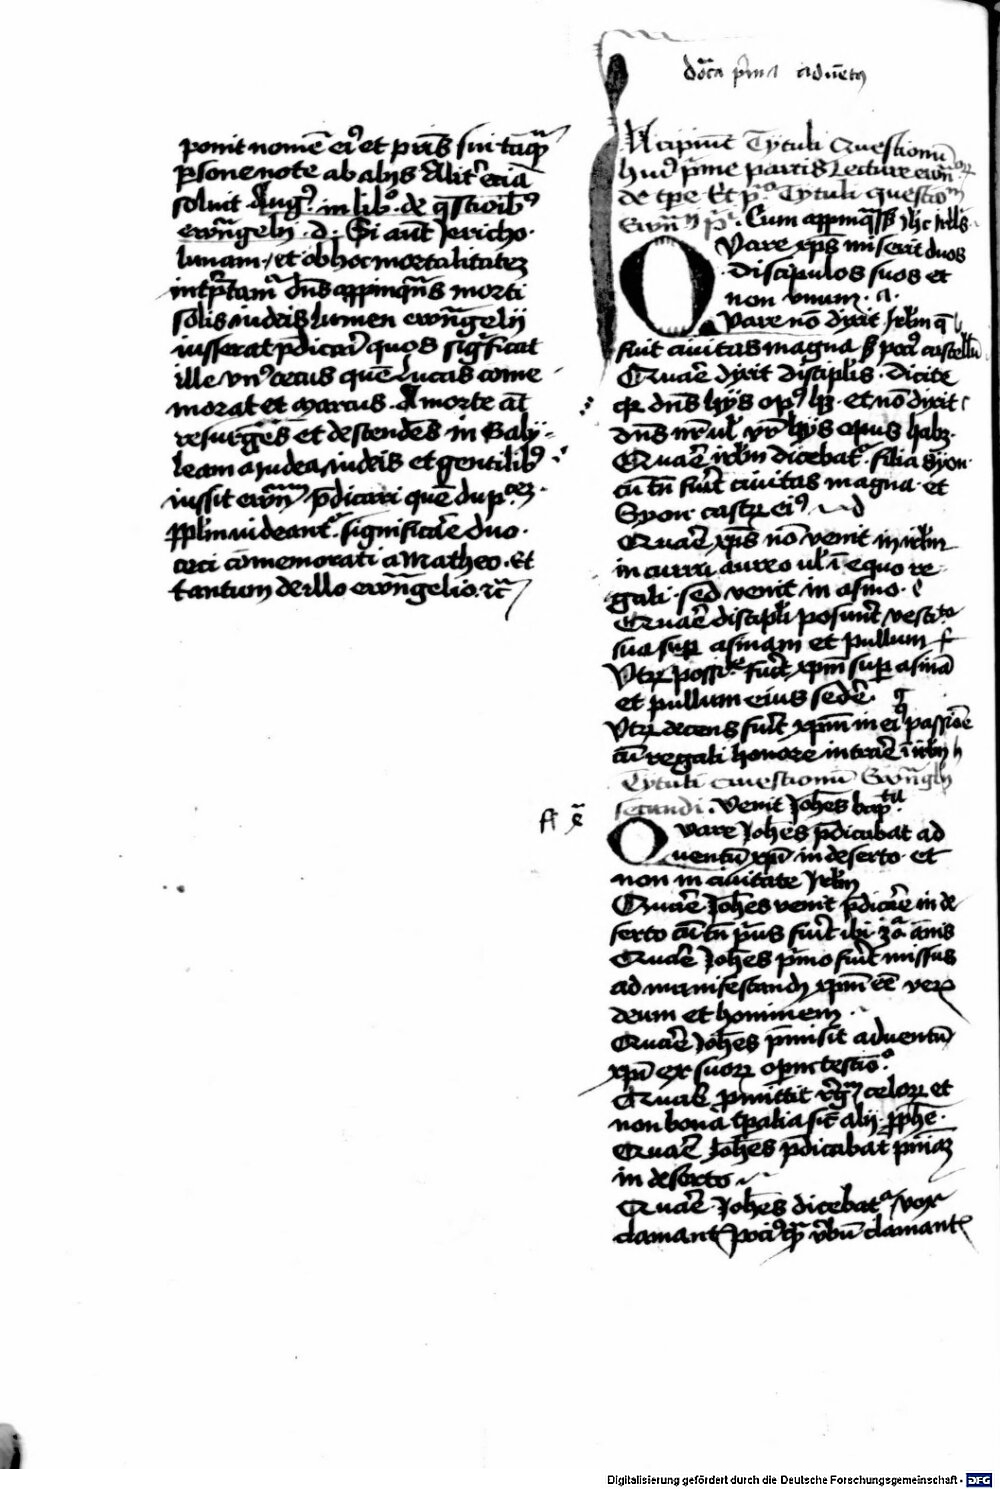 ponit nomē eiꝰ et p̄ris sui tāq̄
ꝑsone note ab alijs Alit̄ eciā
soluit Augꝰ in libº de q̄stioibꝰ
ewāgelij d. Si aūt Jericho
lunam et ob hoc mortalitatez
intp̄tam̄ dn̄s appinq̄ns morti
solis iudeis lumen ewāgelij
iusserat p̄dicari quos sigͥficat
ille vnꝰ cecus quē Lucas come
morat et Marcus. A morte āt
resurgēs et descendēs in Galy
leam a iudea iudeis et gentilibꝰ
iussit ewm̄ p̄dicari quē
videant̄ significāe duo
ceci cōmemorati a Matheo. Et
tantum de illo ewāgelio ⁊c̄
dōica pͥma aduētꝰ
Incipiūt Tytuli Questionū
huiꝰ pͥme partis Lecture ewāꝝ
de tpe Et pº Tytuli questioū
Ewā pͥ Cum appinq̄ss̄
Quare xp̄s miserit duos
discipulos suos et
non vnum. a.
Quare nō dixit Jrlm̄ q̄
fuit ciuitas magna
Quare dixit discipl̄is. Dicite
qꝫ dn̄s hijs opꝰ hꝫ et nō dixit
dn̄s nr̄ ul̄ vr̄ hijs opus habꝫ.
Quare irlm̄ dicebat̄ filia syon
cū tn̄ fuīt ciuitas magna et
Syon castꝝ eiꝰ d
Quare xp̄s nō venit in irlm̄
in curru aureo ul̄ ī equo re
gali sed venit in asino. e
Quare discipl̄i posuīt vestīta
sua suꝑ asinam et pullum f
Vtꝝ possi.le fuīt xp̄m suꝑ asinā
et pullum eius sedē. g
Vtꝝ decens fuīt xp̄m in eiꝰ passiōe
cū regali honore intrāe ī irlm̄ h
Tytuli questionū Ewāgelij
secundi. Venit Joh̄es bap.ta
Quare Joh̄es p̄dicabat ad
uentū xp̄i in deserto et
non in ciuitate Jrlm̄
Quare Joh̄es venit p̄dicāe in de
serto cū tn̄ p̄us fuīt ibi ānis
Quare Joh̄es pͥmo fuīt missus
ad manifestandū xp̄m eē veꝝ
deum et hominem
Quare Joh̄es p̄misit aduentū
xp̄i ex suoꝝ
Quare ꝓmittit rēgᵐ celoꝝ et
non bona tꝑalia sic̄ alij ꝓph̄e.
Quare Joh̄es p̄dicabat pn̄iaꝫ
in deserto
Quare Joh̄es dicebat̄ vox
clamantꝭ pociꝰ qꝫ v̄bū clamantꝭ
Digitalisierung gefördert durch die Deutsche Forschungsgemeinschaft - DFG